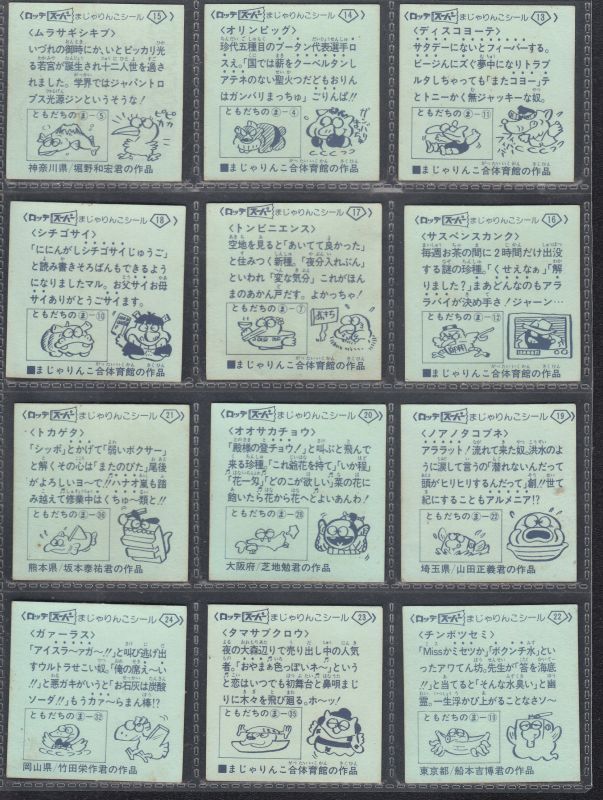 ロッテ スーパー まじゃりんこシール 15
〈ムラサギシキブ〉
いづれの御時にか、いとピッカリ光
る若宮が誕生され十二人世を過さ
れました。学界ではジャパントロ
プス光源ジンというそうな!
ともだちの ま-5
神奈川県/堀野和宏君の作品
ロッテ スーパー まじゃりんこシール 14
〈オリンピッグ〉
珍代五種目のブータン代表選手ロ
スえ。「国では薪をクーベルタンし
アテネのない聖火つだどもおりん
はガンバリまっちゅ」ごりんぱ!!
ともだちの ま-4
■まじゃりんこ合体育館の作品
ロッテ スーパー まじゃりんこシール 13
〈ディスコヨーテ〉
サタデーにないとフィーバーする。
ビージんにすぐ夢中になりトラブ
ルタしちゃっても「またコヨー」テ
とトニーかく無ジャッキーな奴。
ともだちの ま-11
■まじゃりんこ合体育館の作品
ロッテ スーパー まじゃりんこシール 18
〈シチゴサイ〉
「ににんがしシチゴサイじゅうご」
と読み書きそろばんもできるよう
になりましたマル。お父サイお母
サイありがとうごサイます。
ともだちの ま-10
■まじゃりんこ合体育館の作品
ロッテ スーパー まじゃりんこシール 17
〈トンビニエンス〉
空地を見ると「あいてて良かった」
と住みつく新種。「夜分入れぶん」
といわれ「変な気分」これがほん
まのあかん戸だす。よかっちゃ!
ともだちの ま-7
■まじゃりんこ合体育館の作品
ロッテ スーパー まじゃりんこシール 16
〈サスペンスカンク〉
毎週お茶の間に2時間だけ出没
する謎の珍種。「くせえなぁ」「解
りました?」まあどんなのもアラ
ラバイが決め手さ!ジャーン…
ともだちの ま-12
■まじゃりんこ合体育館の作品
ロッテ スーパー まじゃりんこシール 21
〈トカゲタ〉
「シッポ」とかげて「弱いボクサー」
と解くその心は「またのびた」尾後
がよろしいヨ〜で!!ハナオ嵐も踏
み越えて修業中はくちゅ〜類と!!
ともだちの ま-36
熊本県/坂本泰祐君の作品
ロッテ スーパー まじゃりんこシール 20
〈オオサカチョウ〉
「殿様の登チョウ!」と叫ぶと飛んで
来る珍種。「これ爺花を持て」「いか程」
「花一匁」「どこの花が欲しい」菜の花に
飽いたら花から花へとよいあんわ!
ともだちの ま-26
大阪府/芝地勉君の作品
ロッテ スーパー まじゃりんこシール 19
〈ノアノタコブネ〉
アララット!流れて来た奴。洪水の
ように涙して言うの「潜れないんだって
頭がヒリヒリするんだもん」って。創!!世て
紀にすることもアルメニア!?
ともだちの ま-22
埼玉県/山田正義君の作品
ロッテ スーパー まじゃりんこシール 24
〈ガァーラス〉
「アイスラ〜アガ〜!!」と叫び逃げ出
すウルトラせこい奴。「俺の席え〜い
!!」と悪ガキがいうと「お石灰は炭酸
ソーダ!!」もうカァ〜らまん棒!?
ともだちの ま-32
岡山県/竹田栄作君の作品
ロッテ スーパー まじゃりんこシール 23
〈タマサブクロウ〉
夜の大森辺りで売り出し中の人気
者。「おやまぁ色っぽいネ〜」という
と恋はいつでも初舞台と鼻唄まじ
りに木々を飛び廻る。ホーッ!
ともだちの ま-35
■まじゃりんこ合体育館の作品
ロッテ スーパー まじゃりんこシール 22
〈チンボツセミ〉
「Missかミセツか」「ボクンチ水」とい
ったアワてん坊。先生が「答を海底
!!」と当てると「そんな水臭い」と幽
霊。一生浮かび上がることなさソ〜
ともだちの ま-19
東京都/船本吉博君の作品